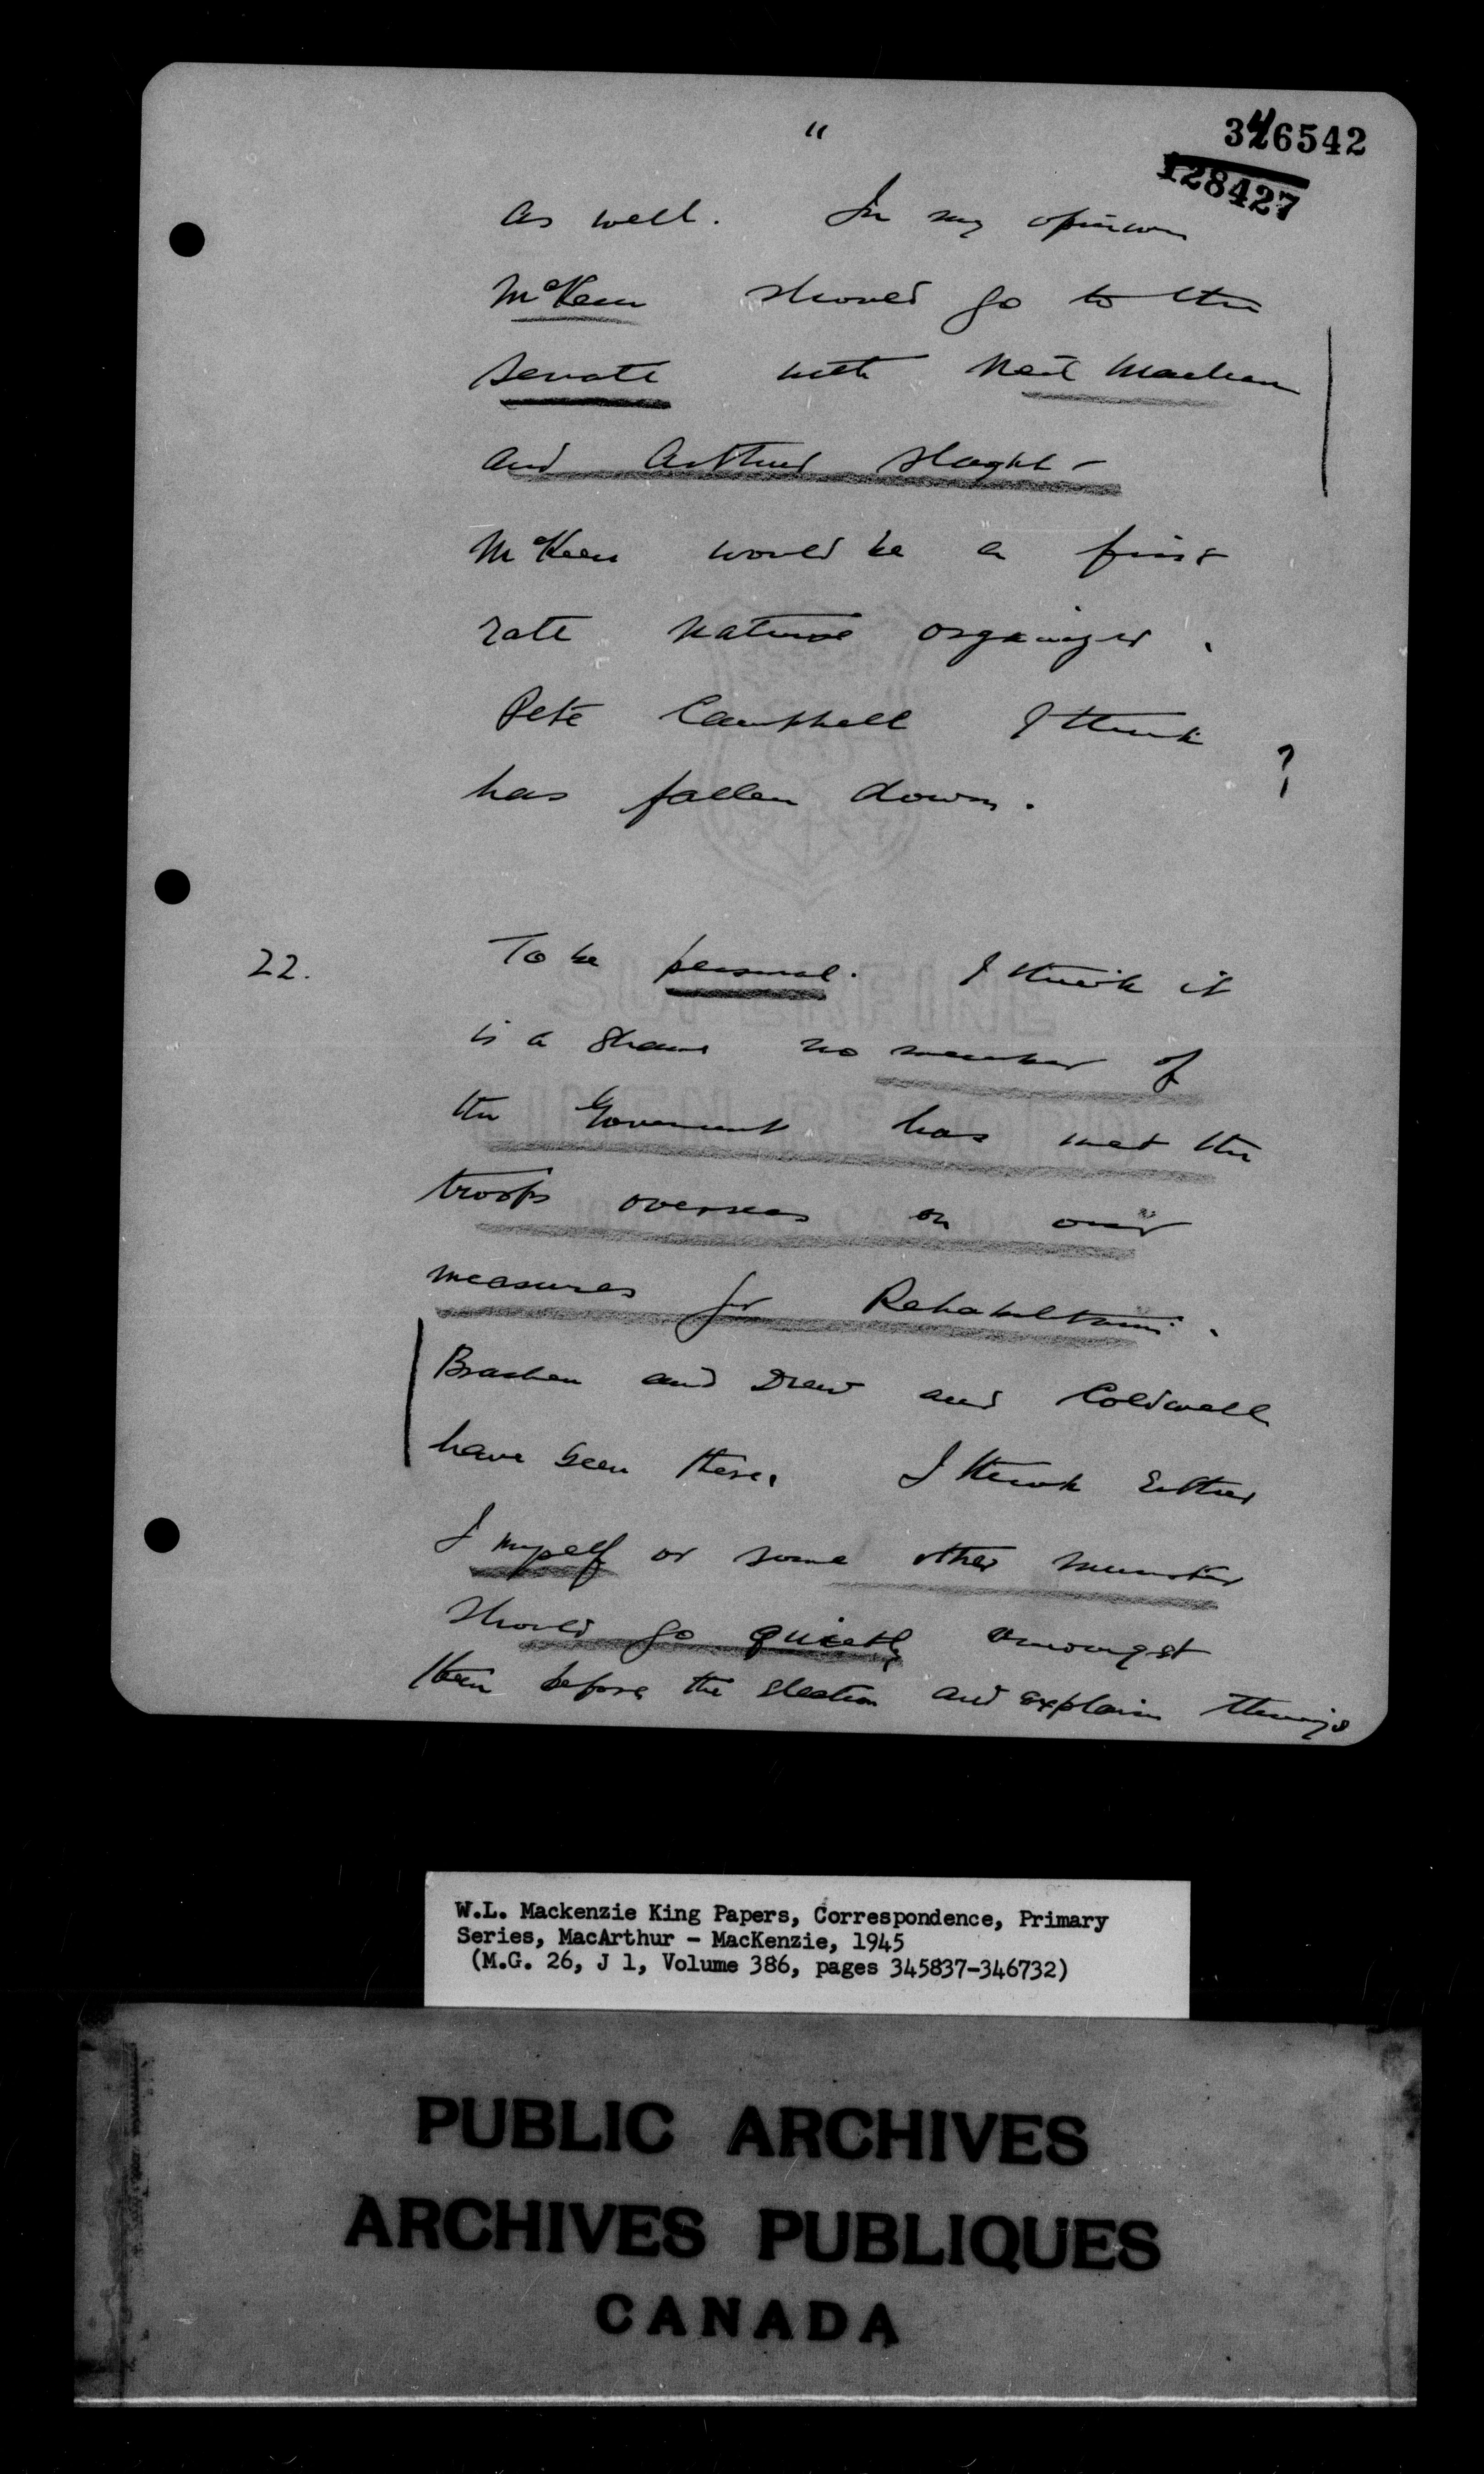 "
346542
128427
as well. In my opinion
McKeen should go to the
Senate with Neil Maclean
and Arthur Slaght -
McKeen would be a first
rate national organizer.
Pete Campbell I think
has fallen down. ?
22. To be personal. I think it
is a shame no member of
the Government has met the
troops overseas on our
measures for Rehabilitation.
Bracken and Drew and Coldwell
have been there. I think Either
I myself or some other minister
should go quietly amongst
them before the election and explain things
SUPERFINE
LINEN RECORD
CANADA
W.L. Mackenzie King Papers, Correspondence, Primary
Series, MacArthur - MacKenzie, 1945
(M.G. 26, J 1, Volume 386, pages 345837-346732)
PUBLIC ARCHIVES
ARCHIVES PUBLIQUES
CANADA